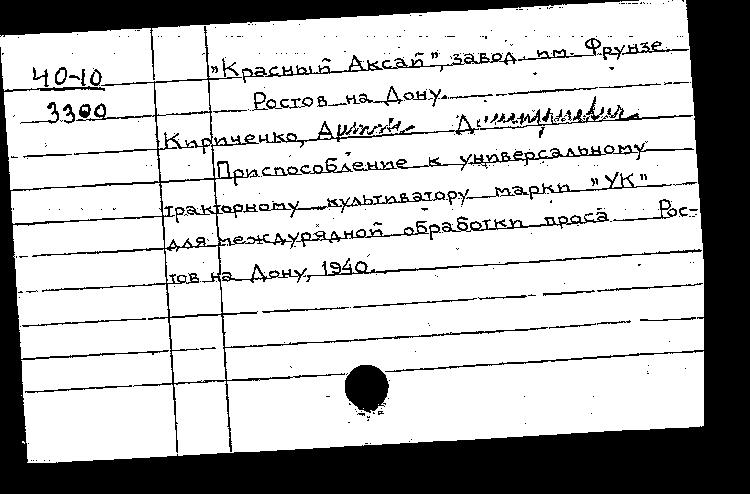 40-10
3300
"Красный Аксай", завод им. Фрунзе.
Ростов на Дону.
Кириченко,
Приспособление к универсальному
тракторному культиватору марки "УК"
для междурядной обработки проса Рос-
тов на Дону, 1940.